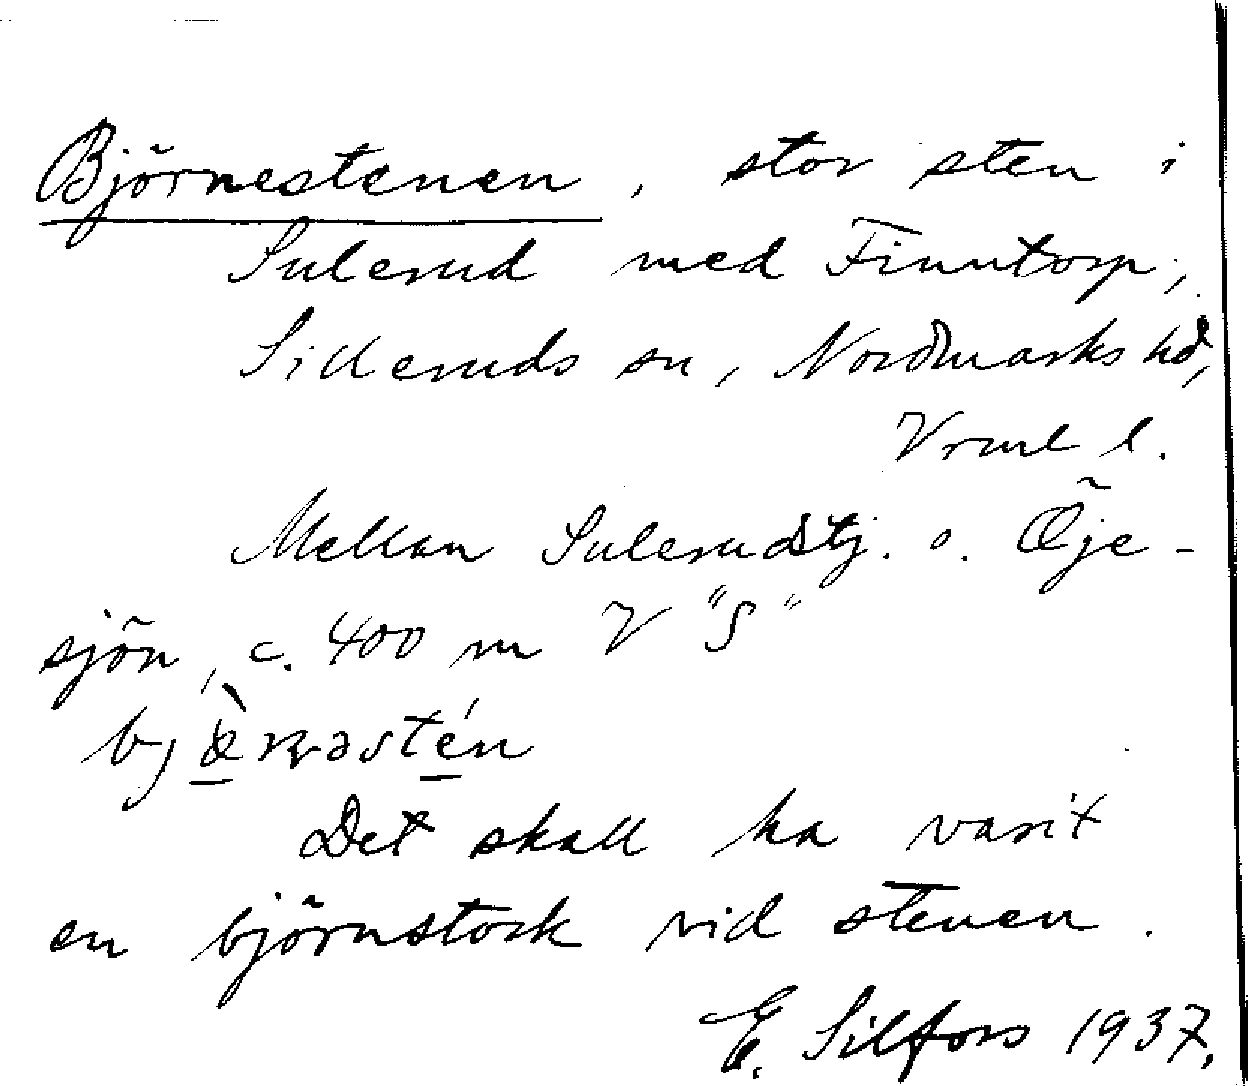 Björnestenen, stor sten i
Sulerud med Finntorp,
Silleruds sn, Nordmarks hd,
Vrml l.
Mellan Sulerudstj. o. Öje-
sjön, c. 400 m V "S"
Det skall ha varit
en björnstock vid stenen.
E. Silfors 1937.